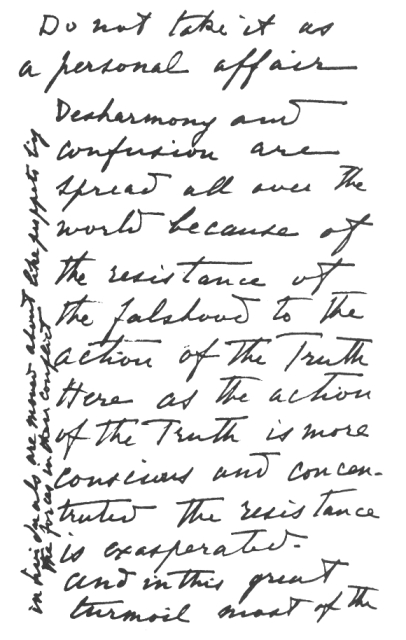 Do not take it as
a personal affair
Desharmony and
confusion are
spread all over the
world because of
the resistance of
the falshood to the
action of the Truth
Here as the action
of the Truth is more
conscious and concen-
trated the resistance
is exasperated.
and in this great
turmoil most of the
individuals are moved about like puppets by
the forces in their conflict